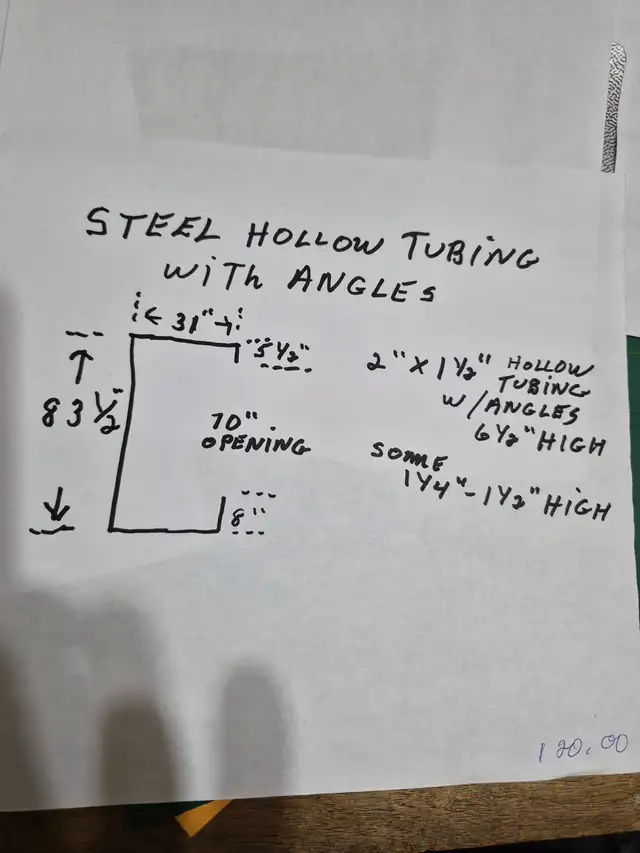 STEEL HOLLOW TUBING
WITH ANGLES
31"
5 1/2"
83 1/2"
70"
OPENING
8"
2" X 1 1/2" HOLLOW
TUBING
W/ANGLES
6 1/2" HIGH
SOME
1 1/4" - 1 1/2" HIGH
120.00